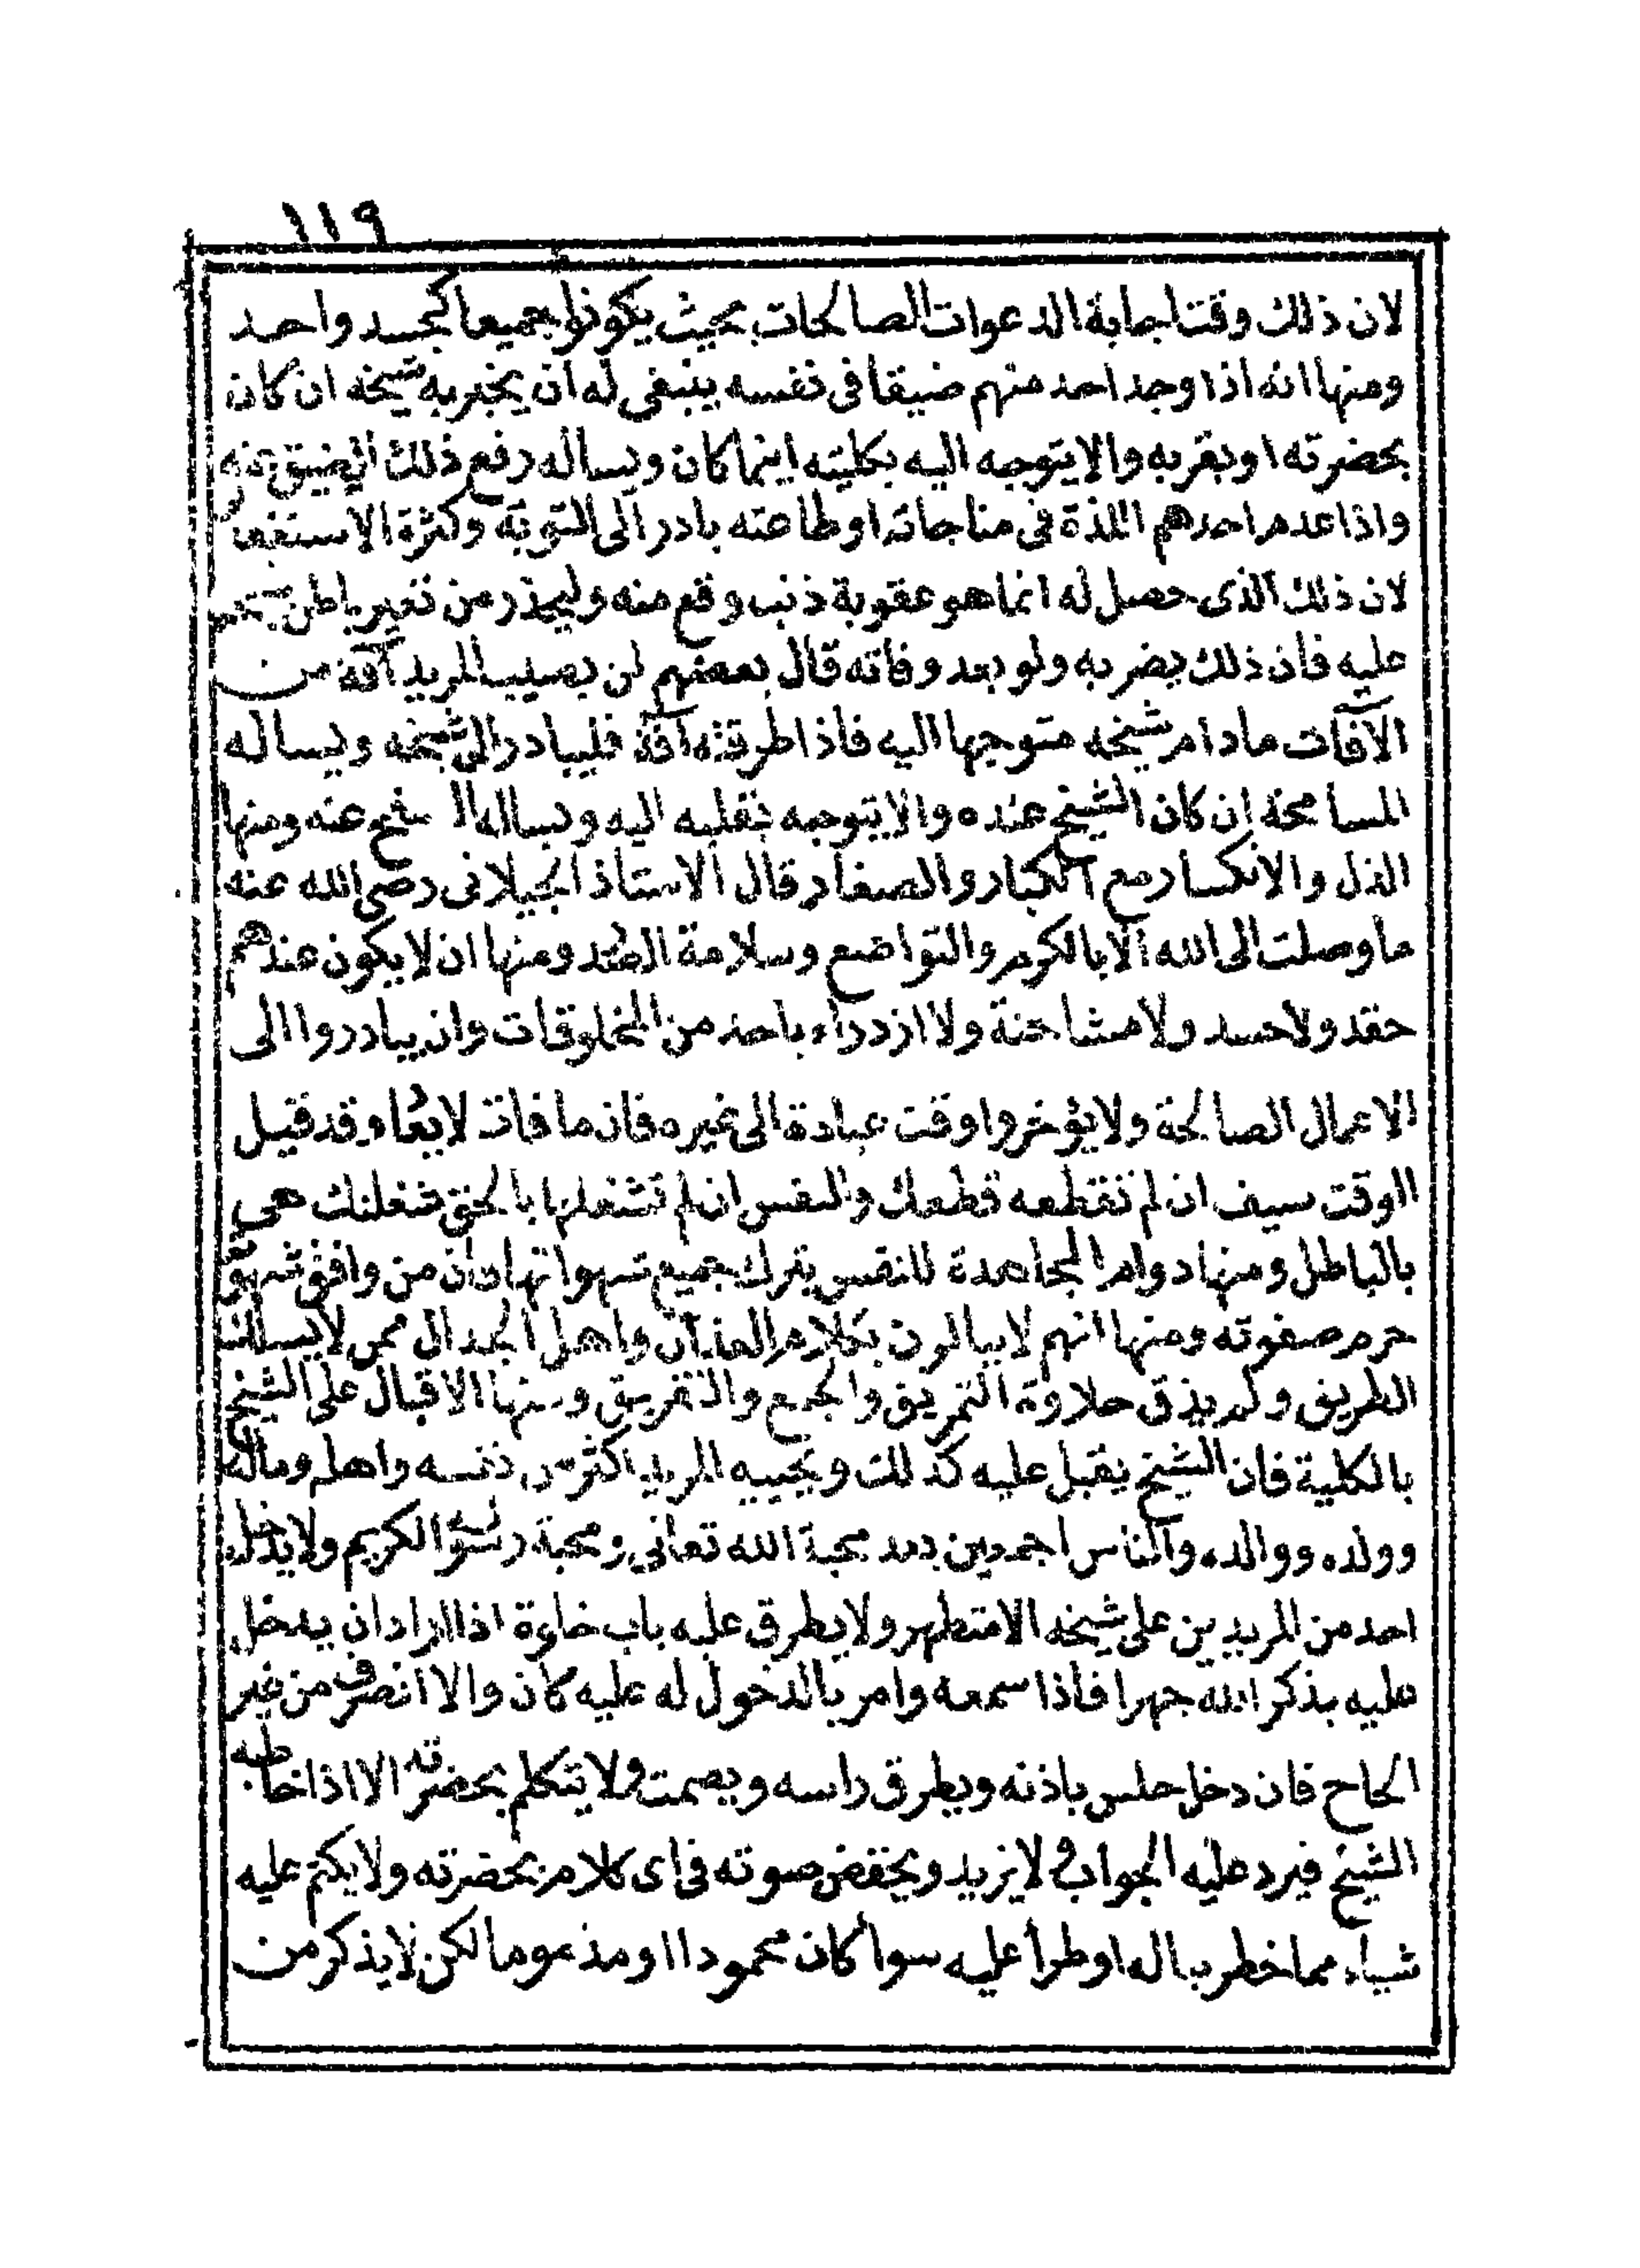 ١١٩
لان ذلك وقت اجابة الدعوات الصالحات بحيث يكونوا جميعا كجسد واحد
ومنها انه اذا وجد احد منهم ضيقا فى نفسه ينبغى له ان يخبر به شيخه ان كان
بحضرته او بقربه والا يتوجه اليه بكليته اينما كان ويساله رفع ذلك الضيق عنه
واذا عدم احدهم اللذة فى مناجاته او طاعته بادر الى التوبة وكثرة الاستغفار
لان ذلك الذى حصل له انما هو عقوبة ذنب وقع منه وليحذر من تغير باطن شيخه
عليه فان ذلك يضر به ولو بعد وفاته قال بعضهم لن يصيب المريد آفة من
الآفات مادام شيخه متوجها اليه فاذا طرقته آفة فليبادر الى شيخه ويساله
المسامحة ان كان الشيخ عنده والا يتوجه بقلبه اليه ويساله الصفح عنه ومنها
الذل والانكسار مع الكبار والصغار قال الاستاذ الجيلانى رضى الله عنه
ما وصلت الى الله الا بالكرم والتواضع وسلامة الصدر ومنها ان لا يكون عندهم
حقد ولا حسد ولا مشاحنة ولا ازدراء باحد من المخلوقات وان يبادروا الى
الاعمال الصالحة ولا يؤخروا وقت عبادة الى غيره فان ما فات لا يعاد وقد قيل
الوقت سيف ان لم تقطعه قطعك والنفس ان لم تشغلها بالحق شغلتك هى
بالباطل ومنها دوام المجاهدة للنفس بترك جميع شهواتها وان من وافق شهوته
حرم صفوته ومنها انهم لا يبالون بكلام العذال واهل الجدال ممن لا يسلك
الطريق ولم يذق حلاوة التمزيق والجمع والتفريق ومنها الاقبال على الشيخ
بالكلية فان الشيخ يقبل عليه كذلك ويحبه المريد اكثر من نفسه واهله وماله
وولده ووالده والناس اجمعين بعد محبة الله تعالى ومحبة رسوله الكريم ولا يدخل
احد من المريدين على شيخه الا متطهر ولا يطرق عليه باب خلوة اذا اراد ان يدخل
عليه بذكر الله جهرا فاذا سمعه وامر بالدخول له عليه كان والا انصرف من غير
الحاح فان دخل جلس باذنه ويطرق راسه ويصمت ولا يتكلم بحضرته الا اذا خاطبه
الشيخ فيرد عليه الجواب ولا يزيد ويخفض صوته فى اى كلام بحضرته ولا يكتم عليه
شياء مما خطر بباله او طرأ عليه سوأ كان محمودا او مذموما لكن لا يذكر من